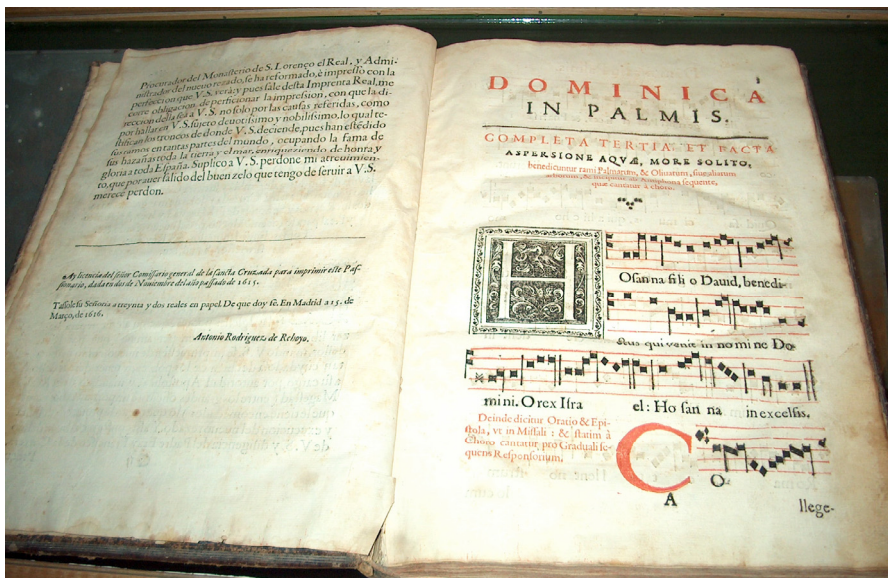 Procurador del Monasterio de S. Lorenço el Real, y Admi-
nistrador del nuevo rezado, se ha reformado, è impresso con la
perfeccion que V.S. verà; y pues sale desta Imprenta Real, me
corre obligacion de perficionar la impression, con que la di-
reccion della sea à V.S. no solo por las causas referidas, como
por hallar en V.S. sujeto devotissimo y nobilissimo, lo qual te-
stifican los troncos de donde V.S. deciende, pues han estẽdido
sus ramos en tantas partes del mundo, ocupando la fama de
sus hazañas toda la tierra y el mar, enriqueziendo de honra, y
gloria a toda España. Suplico a V.S. perdone mi atreuimien-
to, que por auer salido del buen zelo que tengo de seruir a V.S.
merece perdon.
Ay licencia del señor Comissario general de la sancta Cruzada para imprimir este Pas-
sionario, dada en dos de Nouiembre del año passado de 1615.
Tassole su Señoria a treynta y dos reales en papel. De que doy fe. En Madrid a 15. de
Março, de 1616.
Antonio Rodriguez de Rehoyo.
DOMINICA
IN PALMIS.
COMPLETA TERTIA. ET FACTA
ASPERSIONE AQVÆ, MORE SOLITO,
benedicuntur rami Palmarum, & Oliuarum, siue aliarum
arborum, & Antiphona sequente,
quæ cantatur à choro.
H
Osanna fili o Dauid, benedi-
ctus qui venit in no mi ne Do-
mini. O rex Isra el: Ho san na in excelsis.
Deinde dicitur Oratio & Epi-
stola, vt in Missali: & statim à
Choro cantatur pro Graduali se-
quens Responsorium.
C O-
A llege-